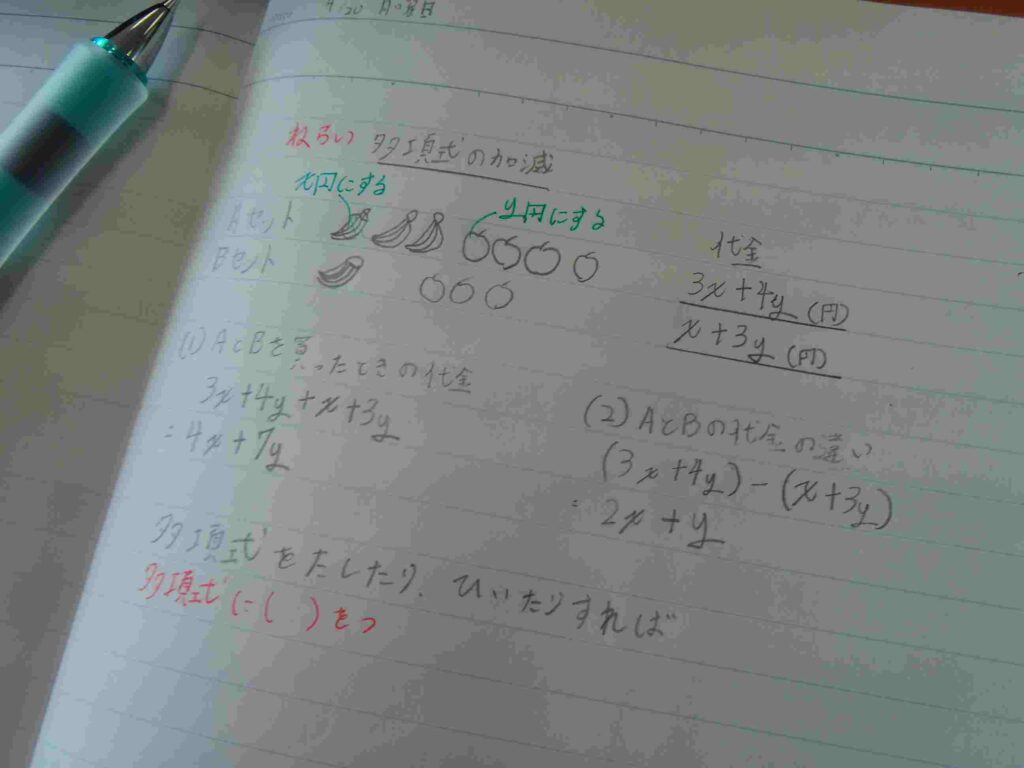 4/20 月曜日
ねらい 多項式の加減
x円にする
y円にする
Aセット
Bセット
代金
3x+4y (円)
x+3y (円)
(1) AとBを買ったときの代金
3x+4y+x+3y
=4x+7y
(2) AとBの代金の違い
(3x+4y)-(x+3y)
=2x+y
多項式をたしたり、ひいたりすれば
多項式に( )をつ